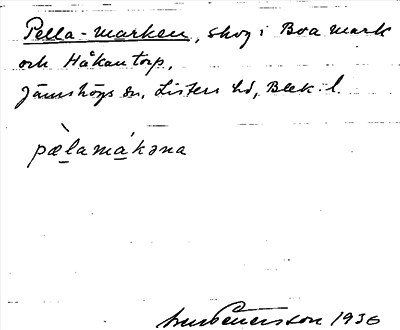 Pella-marken, skog i Boa mark
och Håkantorp,
Jämshögs sn, Listers hd, Blek. l.
pælamákəna
1930